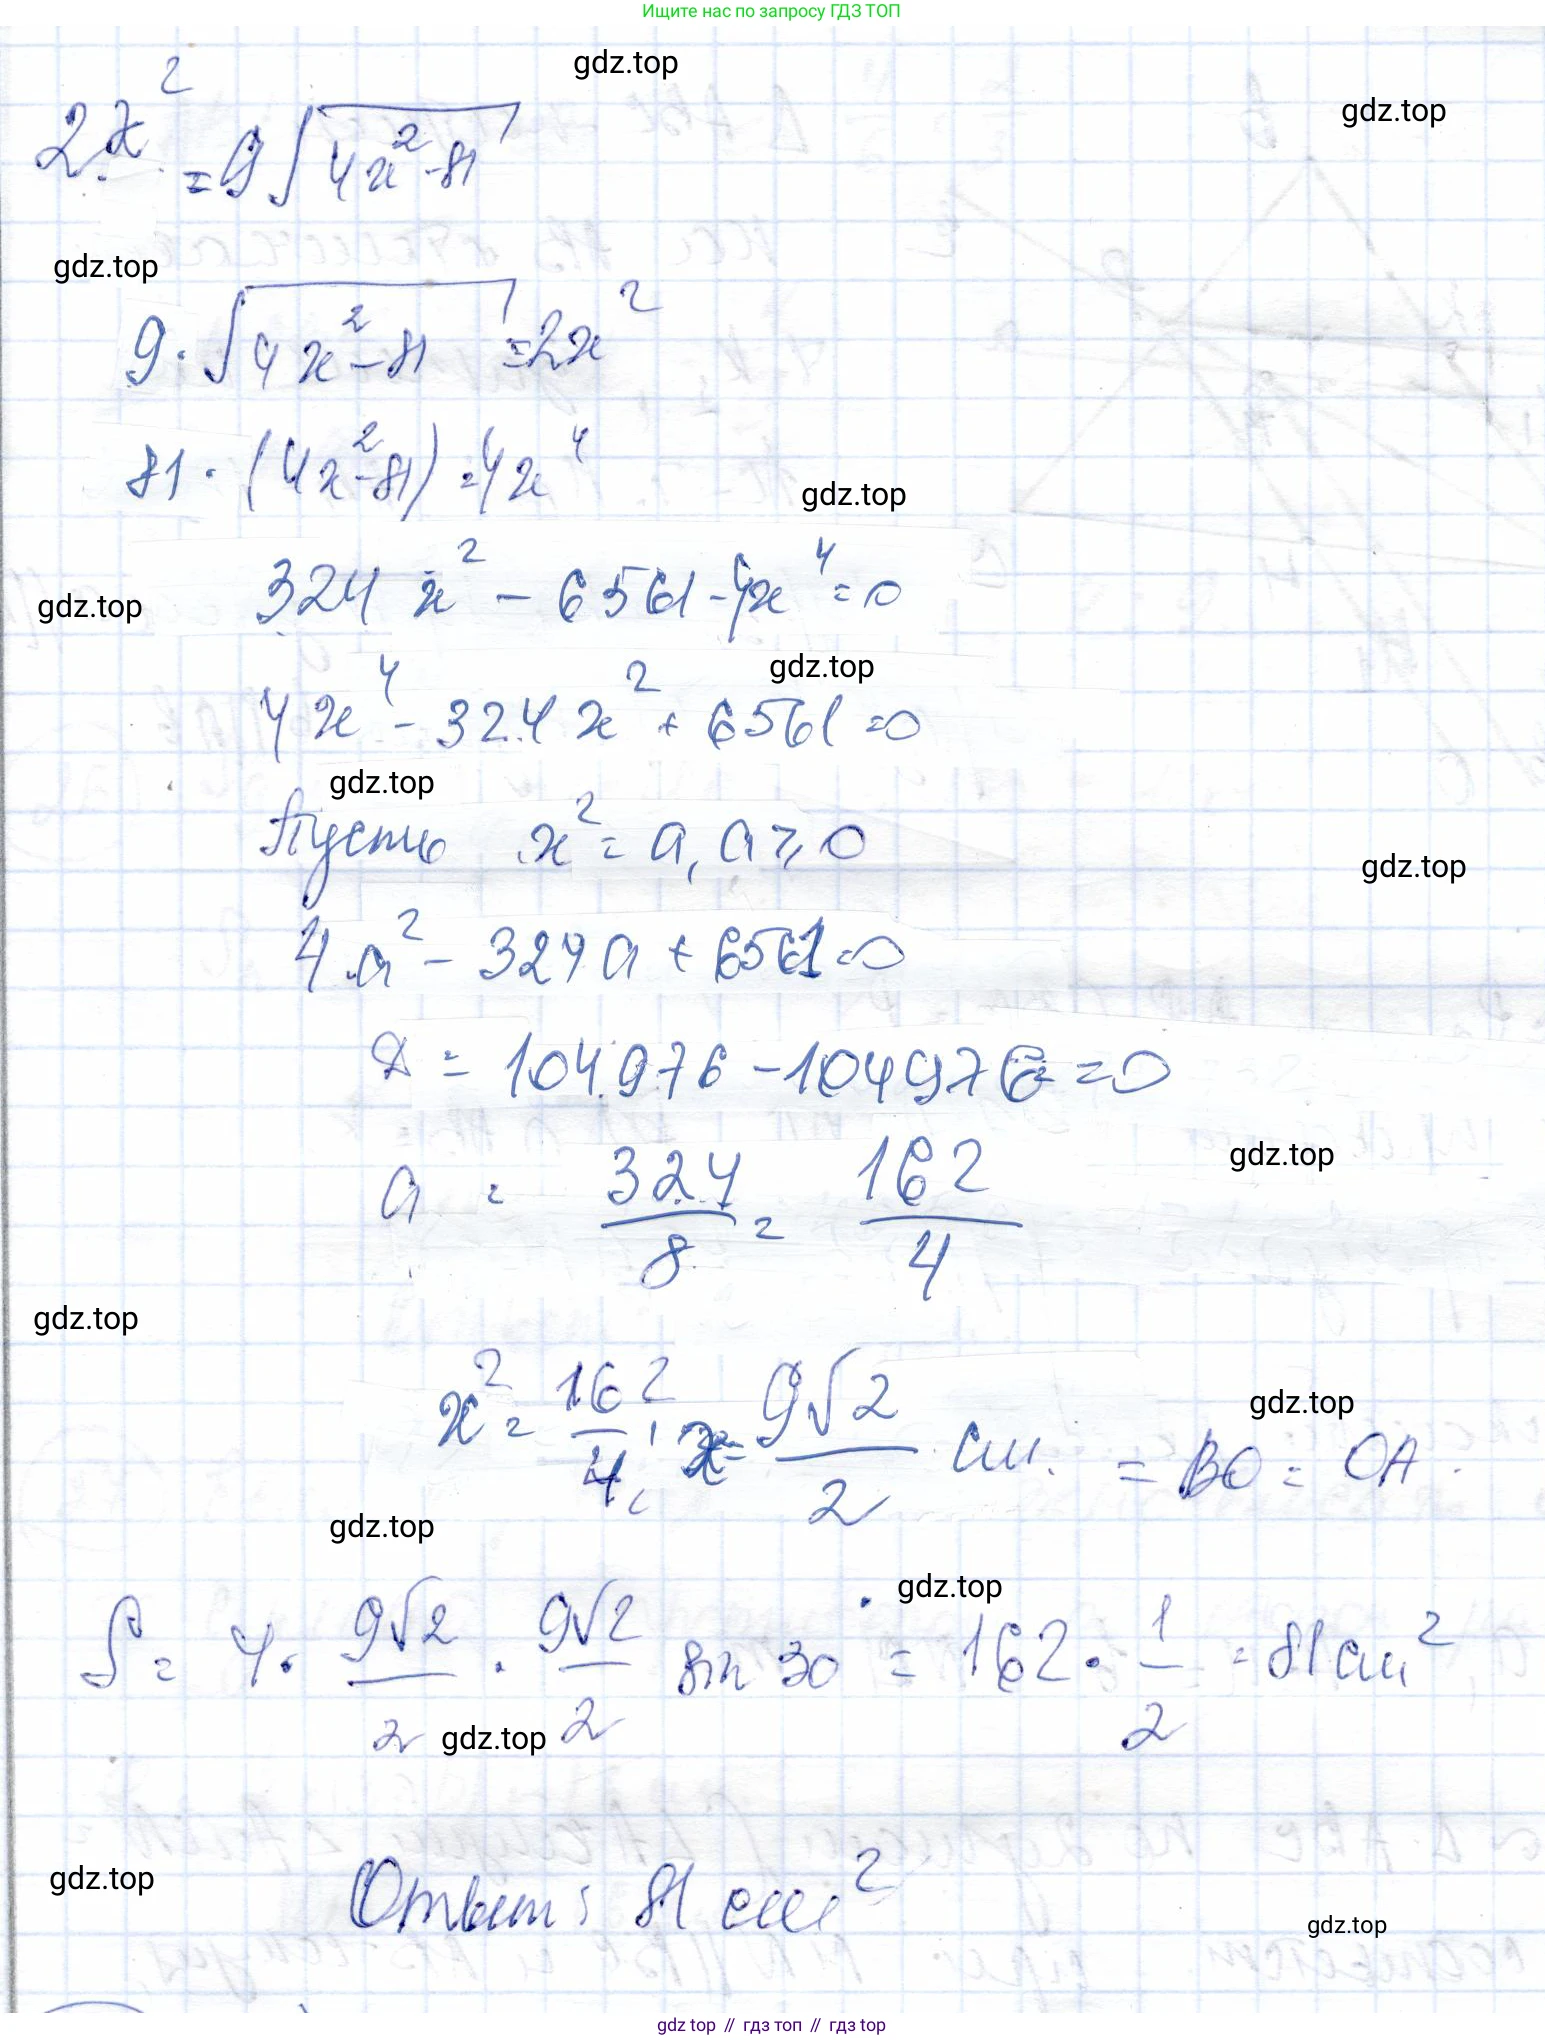 Ищите нас по запросу ГДЗ ТОП
gdz.top
gdz.top
2x² = 9√(4x²-81)
gdz.top
9·√(4x²-81) = 2x²
81·(4x²-81) = 4x⁴
gdz.top
324x² - 6561 - 4x⁴ = 0
gdz.top
gdz.top
4x⁴ - 324x² + 6561 = 0
gdz.top
Пусть x² = a, a ⩾ 0
gdz.top
4a² - 324a + 6561 = 0
D = 104976 - 104976 = 0
gdz.top
a = 324/8 = 162/4
gdz.top
gdz.top
x² = 162/4; x = 9√2/2 см. = BO = OA.
gdz.top
gdz.top
S = 4 · 9√2/2 · 9√2/2 sin 30° = 162 · 1/2 = 81 см²
gdz.top
gdz.top
Ответ: 81 см²
gdz.top
gdz top // гдз топ // гдз top